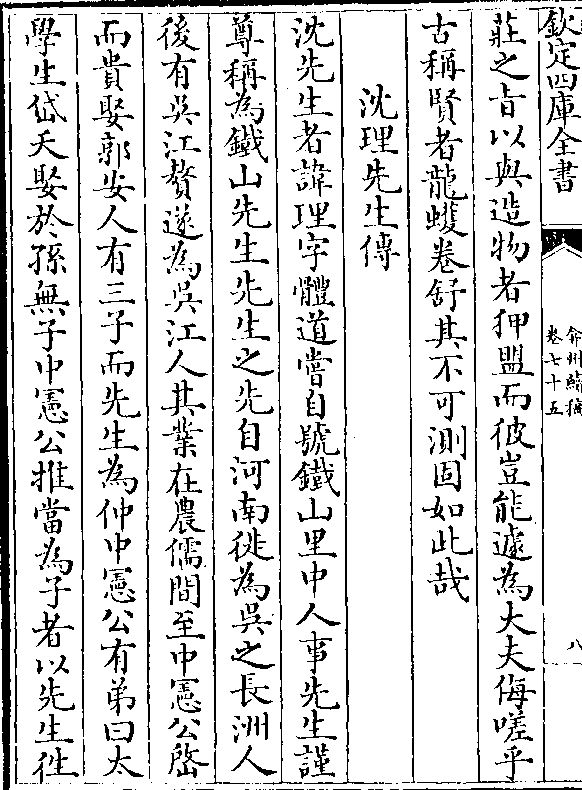 欽定四庫全書
弇州續稿
卷七十五
八
莊之旨以與造物者狎盟而彼豈能遽為大夫侮嗟乎
古稱賢者龍蠖卷舒其不可測固如此哉
沈理先生傳
沈先生者諱理字體道嘗自號鐵山里中人事先生謹
尊稱為鐵山先生先生之先自河南徙為吳之長洲人
後有吳江贅遂為吳江人其業在農儒間至中憲公啓
而貴娶郭安人有三子而先生為仲中憲公有弟曰太
學生岱夭娶於孫無子中憲公推當為子者以先生徃